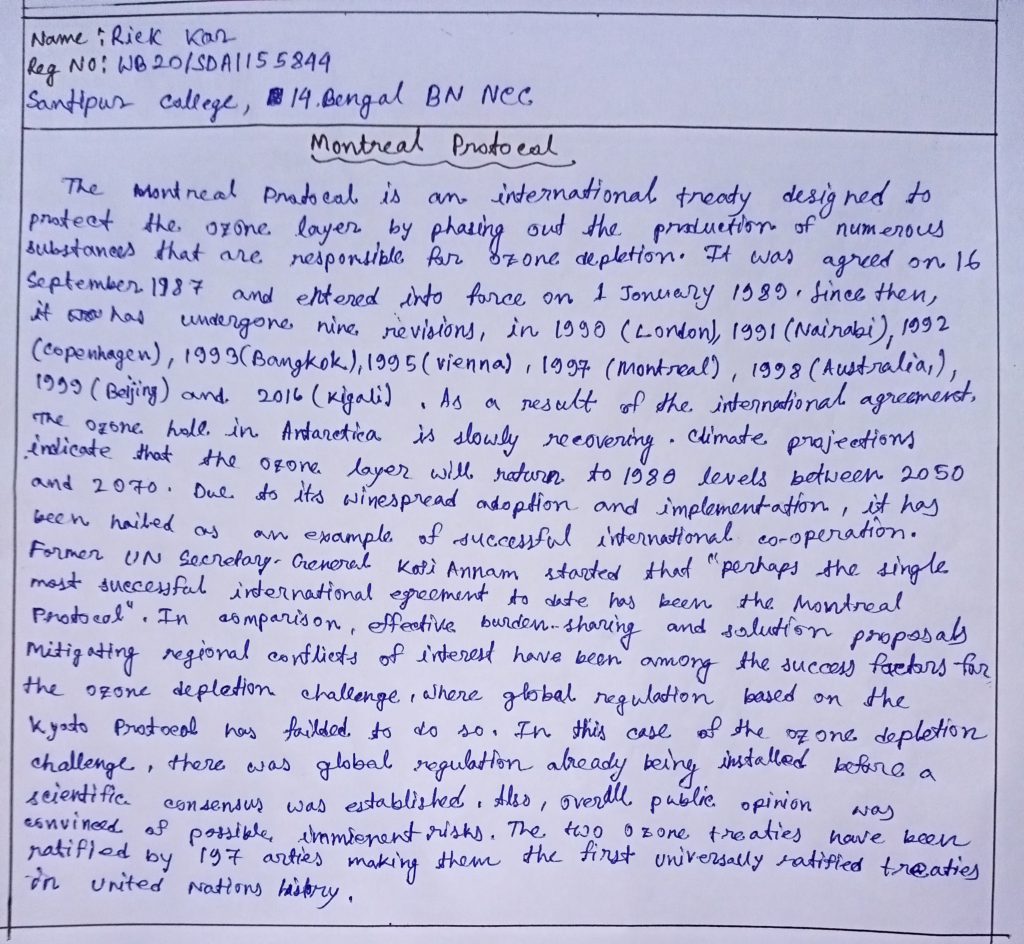 Name : Riek Kar
Reg NO: WB20/SDA1155844
Santipur College, 14.Bengal BN NCC
Montreal Protocol
The Montreal Protocal is an international treaty designed to
protect the ozone layer by phasing out the production of numerous
substances that are responsible for ozone depletion. It was agreed on 16
September 1987 and entered into force on 1 Jonuary 1989. Since then,
it has undergone nine revisions, in 1990 (London), 1991 (Nairabi), 1992
(Copenhagen), 1993(Bangkok), 1995(vienna), 1997 (Montreal), 1998 (Australia,),
1999 (Beijing) and 2016 (Kigali). As a result of the international agreement,
The ozone hole in Antarctica is slowly recovering. Climate projections
indicate that the ozone layer will return to 1980 levels between 2050
and 2070. Due to its winespread adoption and implementation, it has
been hailed as an example of successful international co-operation.
Former UN Secretary-General Kofi Annam started that "perhaps the single
most successful international egreement to date has been the Montreal
Protocol". In comparison, effective burden-sharing and solution proposals
mitigating regional conflicts of interest have been among the success factors for
the ozone depletion challenge, where global regulation based on the
Kyoto Protocol has failded to do so. In this case of the ozone depletion
challenge, there was global regulation already being installed before a
scientific consensus was established. Also, overall public opinion was
convinced of possible immienent risks. The two ozone treaties have been
ratified by 197 arties making them the first universally ratified treaties
in United Nations history.